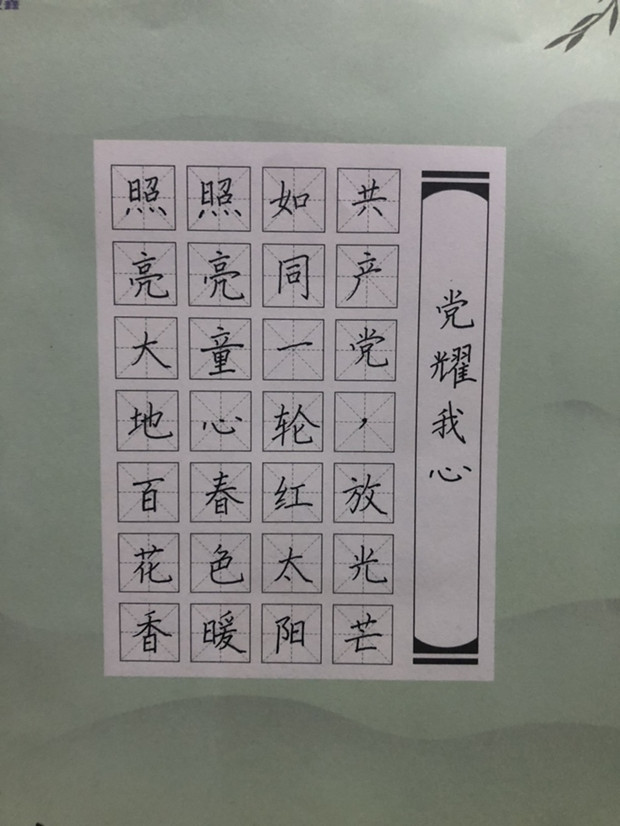 党耀我心
共产党，放光芒
如同一轮红太阳
照亮童心春色暖
照亮大地百花香